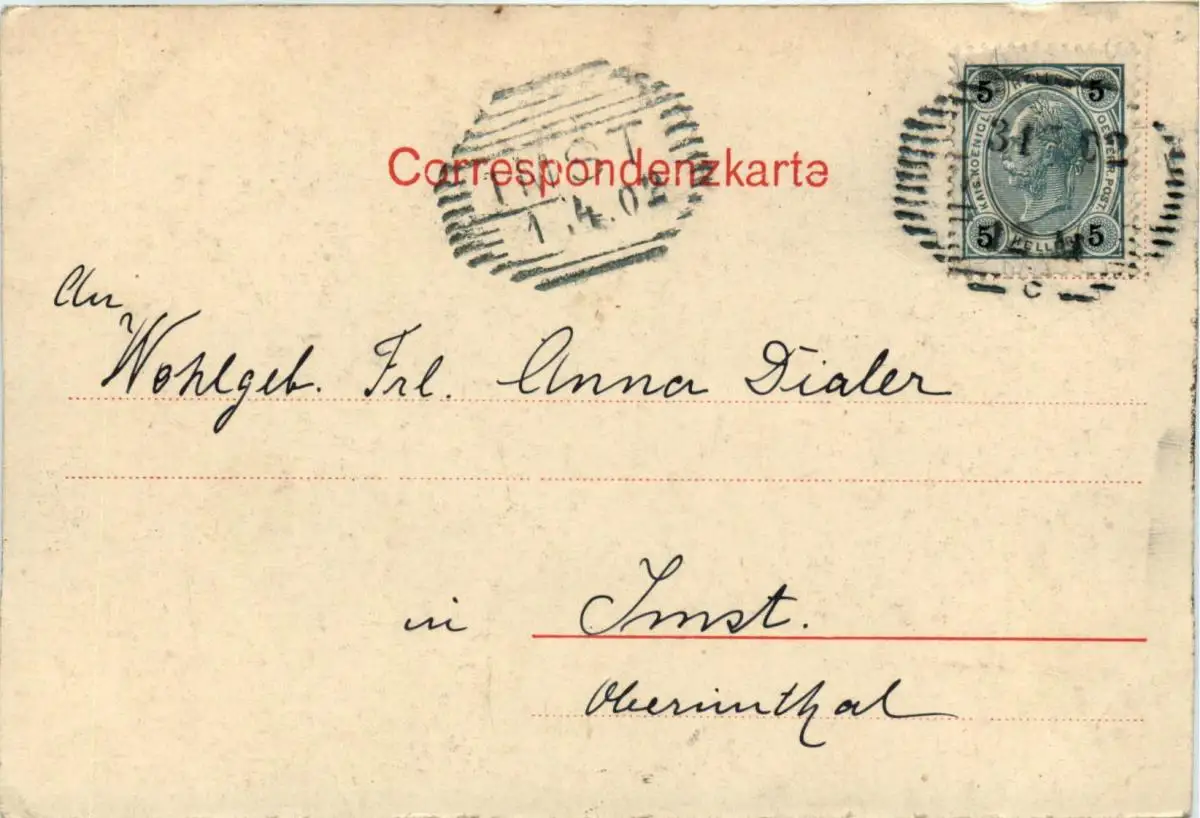 Correspondenzkarte
IMST
1.4.02
5 HELLER 5
KAIS. KOENIGL. OESTERR. POST.
5 HELLER 5
31 02
C
An
Wohlgeb. Frl. Anna Dialer
in Imst.
Oberinnthal